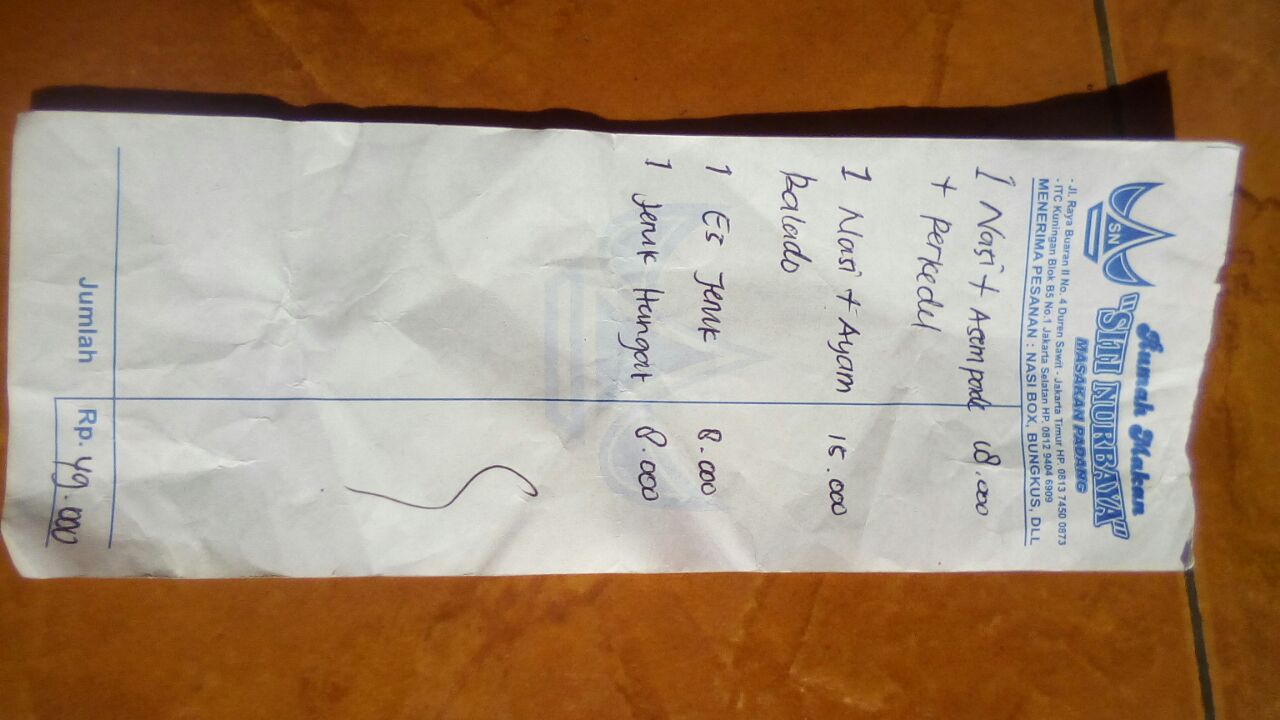 Rumah Makan
"SITI NURBAYA"
MASAKAN PADANG
SN
- Jl. Raya Buaran II No. 4 Duren Sawit - Jakarta Timur HP. 0813 7450 0873
- ITC Kuningan Blok B5 No.1 Jakarta Selatan HP. 0812 9404 6909
MENERIMA PESANAN : NASI BOX, BUNGKUS, DLL
1 Nasi + Asam pade 18.000
+ perkedel
1 Nasi + Ayam 15.000
balado
1 Es Jeruk 8.000
1 Jeruk Hangat 8.000
Jumlah Rp. 49.000